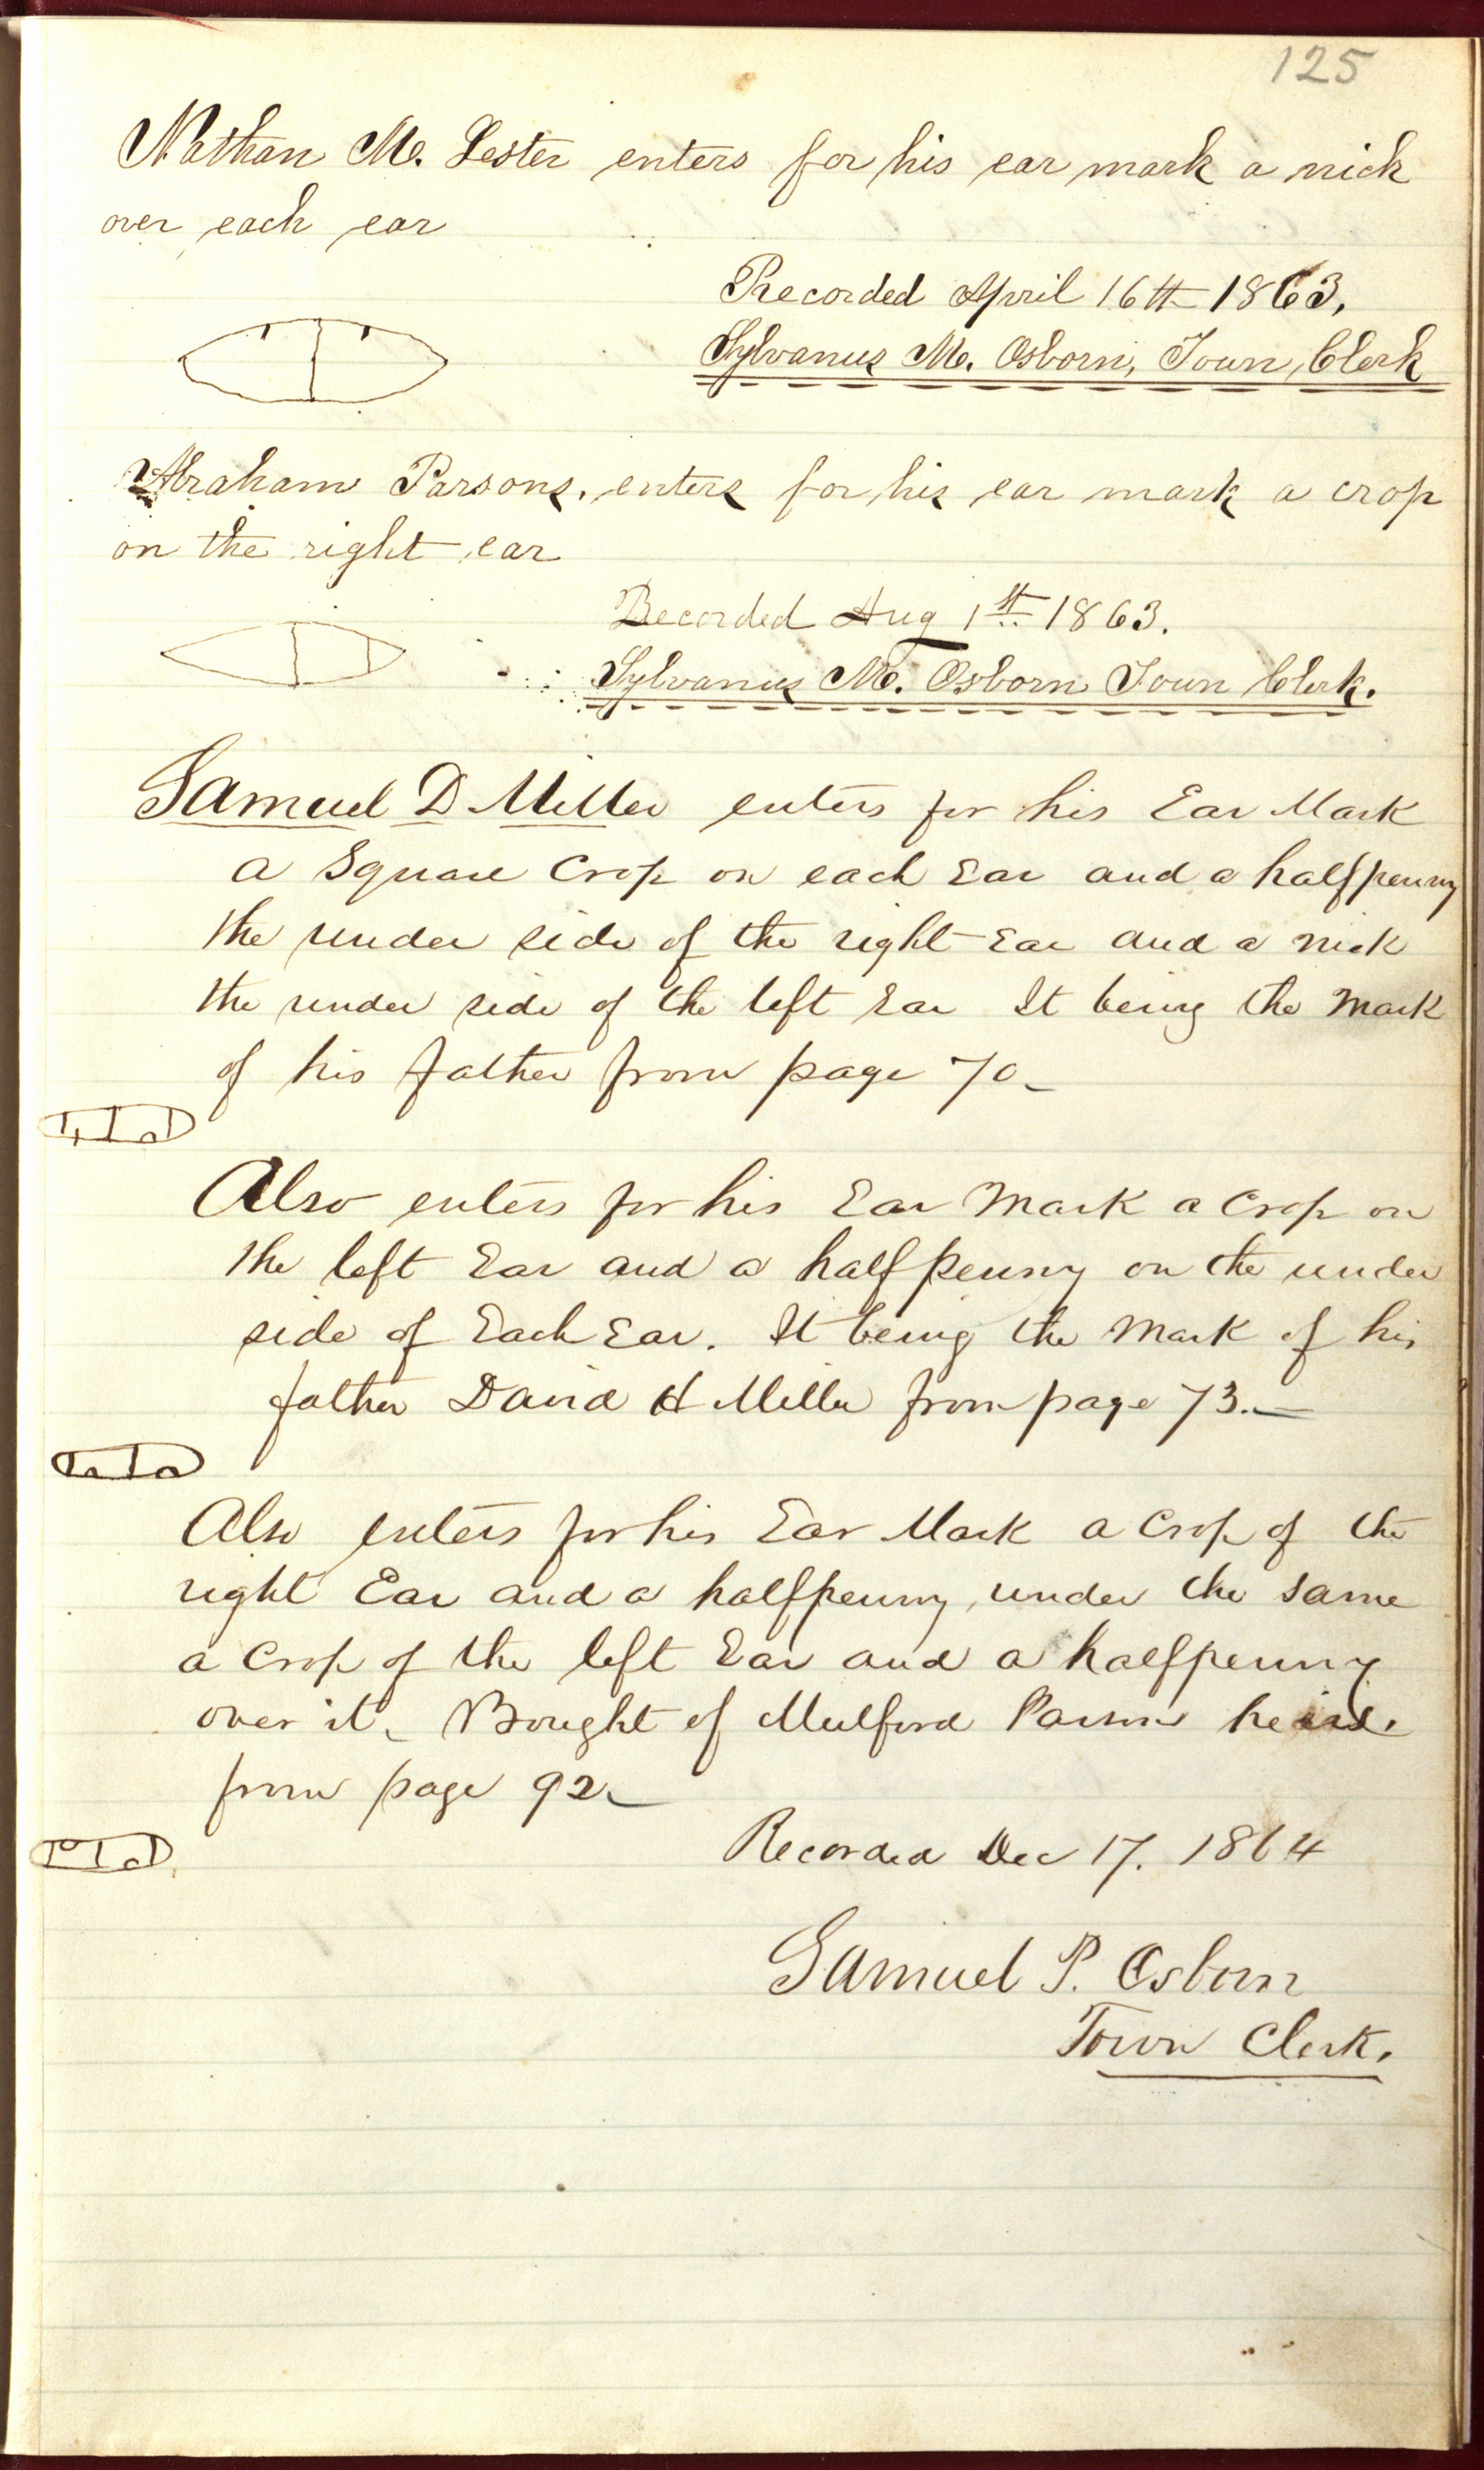 125
Nathan M. Lester enters for his ear mark a nick
over each ear
Recorded April 16th 1863,
Sylvanus M. Osborn, Town Clerk
Abraham Parsons, enters for his ear mark a crop
on the right ear
Recorded Aug 1st 1863.
Sylvanus M. Osborn Town Clerk.
Samuel D Miller enters for his Ear Mark
a Square Crop on each Ear and a halfpenny
the under side of the right Ear and a nick
the under side of the left Ear It being the Mark
of his father from page 70
Also enters for his Ear Mark a Crop on
the left Ear and a halfpenny on the under
side of Each Ear. It being the Mark of his
father David H Miller from page 73.
Also enters for his Ear Mark a Crop of the
right Ear and a halfpenny under the same
a Crop of the left Ear and a halfpenny
over it. Bought of Mulford Parsons heirs.
from page 92
Recorded Dec 17. 1864
Samuel P. Osborn
Town Clerk.